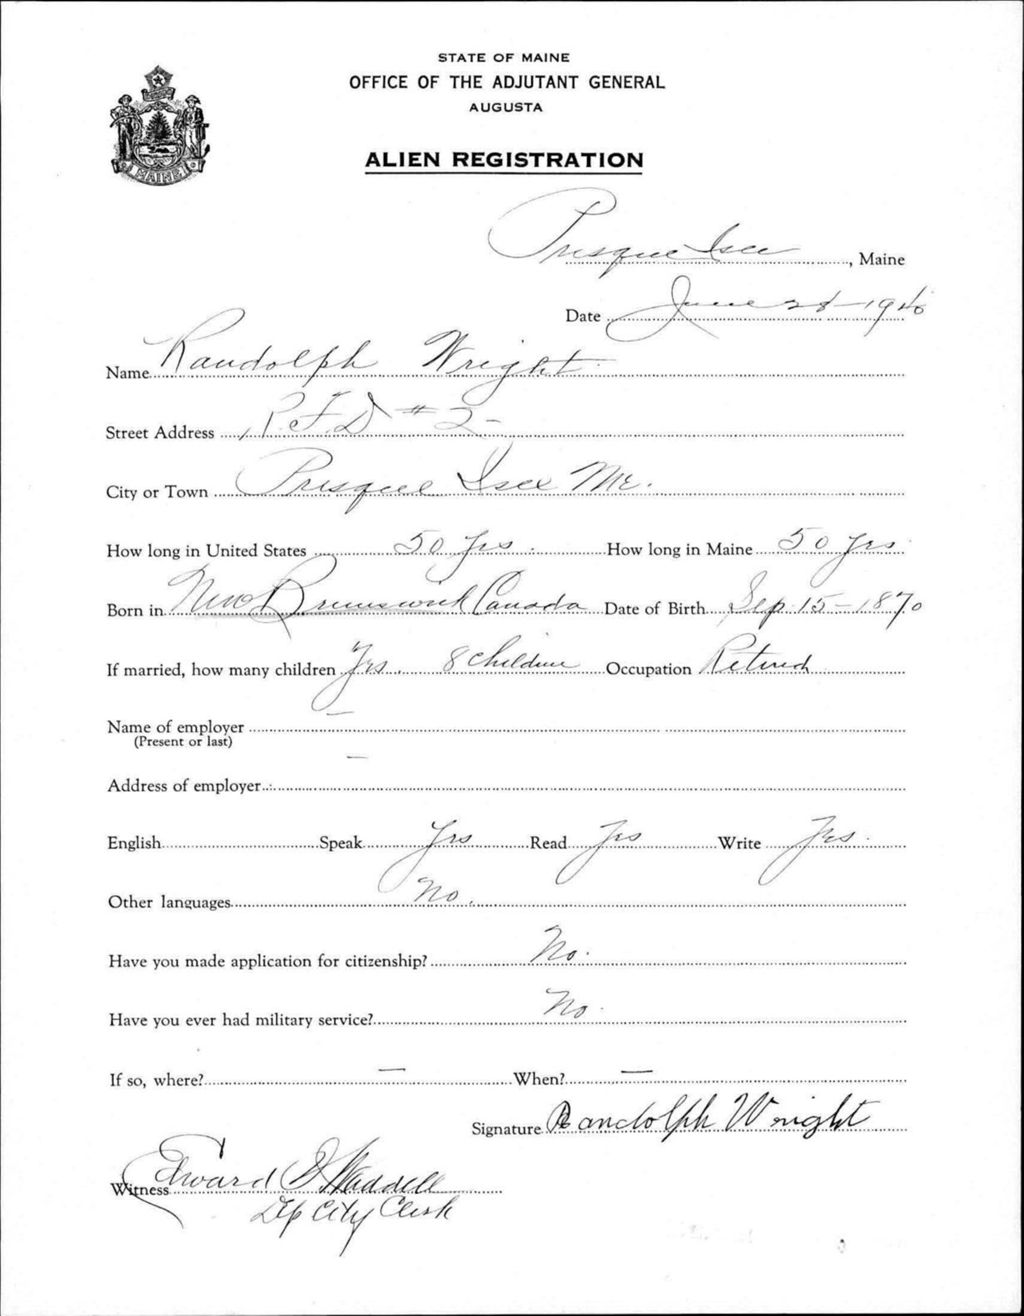 STATE OF MAINE
OFFICE OF THE ADJUTANT GENERAL
AUGUSTA
ALIEN REGISTRATION
MAINE
Presque Isle, Maine
Date June 28 - 1940
Name Randolph Wright
Street Address R.F.D #2-
City or Town Presque Isle Me.
How long in United States 50 Yrs. How long in Maine 50 Yrs.
Born in New Brunswick Canada Date of Birth Sep 15 - 1870
If married, how many children Yes. 8 children Occupation Retired
Name of employer —
(Present or last)
Address of employer —
English Speak Yes Read Yes Write Yes.
Other languages No.
Have you made application for citizenship? No.
Have you ever had military service? No.
If so, where? — When? —
Signature Randolph Wright
Witness Edward D Waddell
Dep City Clerk